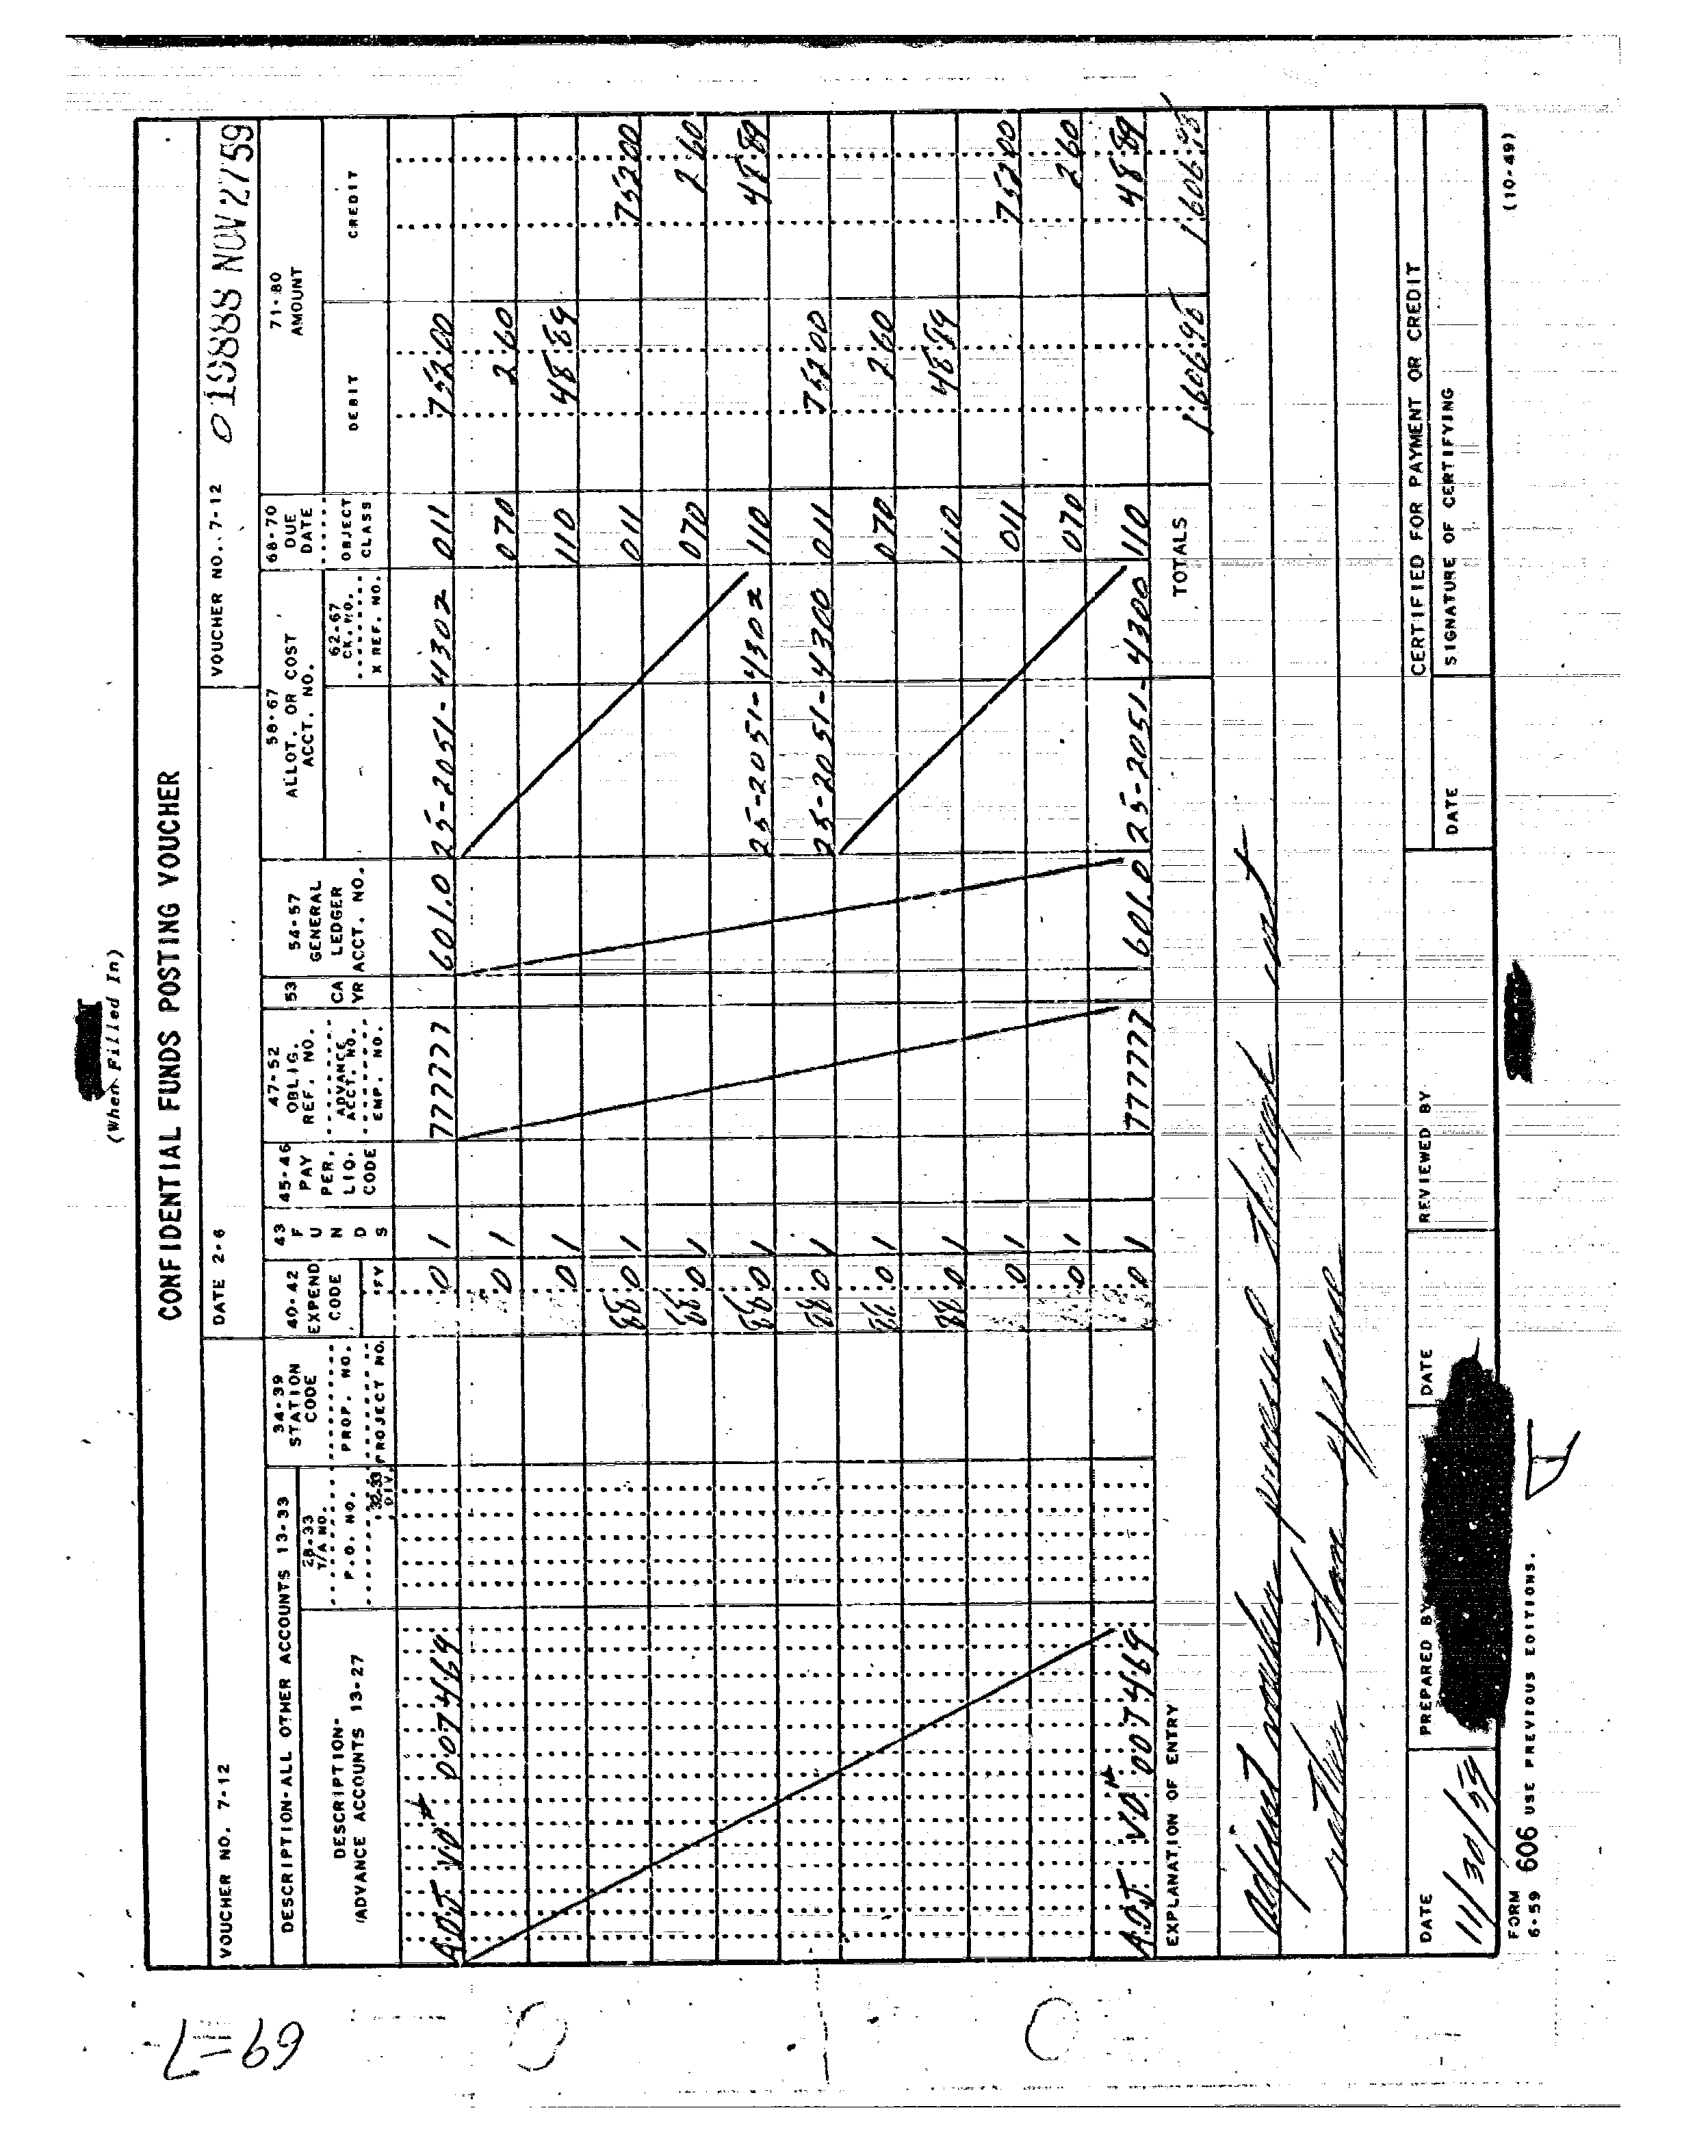 (When Filled In)
CONFIDENTIAL FUNDS POSTING VOUCHER
VOUCHER NO. 7-12 DATE 2-6 VOUCHER NO. 7-12 019888 NOV 27 59
DESCRIPTION-ALL OTHER ACCOUNTS 13-33
DESCRIPTION-
ADVANCE ACCOUNTS 13-27
28-33
T/A NO.
P.O. NO.
32-33
DIV.
34-39
STATION
CODE
PROP. NO.
PROJECT NO.
40-42
EXPEND
CODE
FY
43
F
U
N
D
S
45-46
PAY
PER.
LIQ.
CODE
47-52
OBLIG.
REF. NO.
ADVANCE
ACCT. NO.
EMP. NO.
53
CA
YR
54-57
GENERAL
LEDGER
ACCT. NO.
58-67
ALLOT. OR COST
ACCT. NO.
62-67
CK. NO.
X REF. NO.
68-70
DUE
DATE
OBJECT
CLASS
71-80
AMOUNT
DEBIT CREDIT
ADJ VO# 007469 0 1 777777 601.0 25-2051-4302 011 752.00
0 1 070 2.60
0 1 110 48.89
88 0 1 011 752.00
88 0 1 070 2.60
88 0 1 25-2051-4302 110 48.89
88 0 1 25-2051-4300 011 752.00
88 0 1 070 2.60
88 0 1 110 48.89
0 1 011 752.00
0 1 070 2.60
ADJ VO# 007469 0 1 777777 601.0 25-2051-4300 110 48.89
EXPLANATION OF ENTRY TOTALS 1,606.98 1,606.98
Adjust voucher processed through
rather than
DATE PREPARED BY DATE REVIEWED BY CERTIFIED FOR PAYMENT OR CREDIT
11/30/59
DATE SIGNATURE OF CERTIFYING
FORM
6-59 606 USE PREVIOUS EDITIONS. (10-49)
69=7